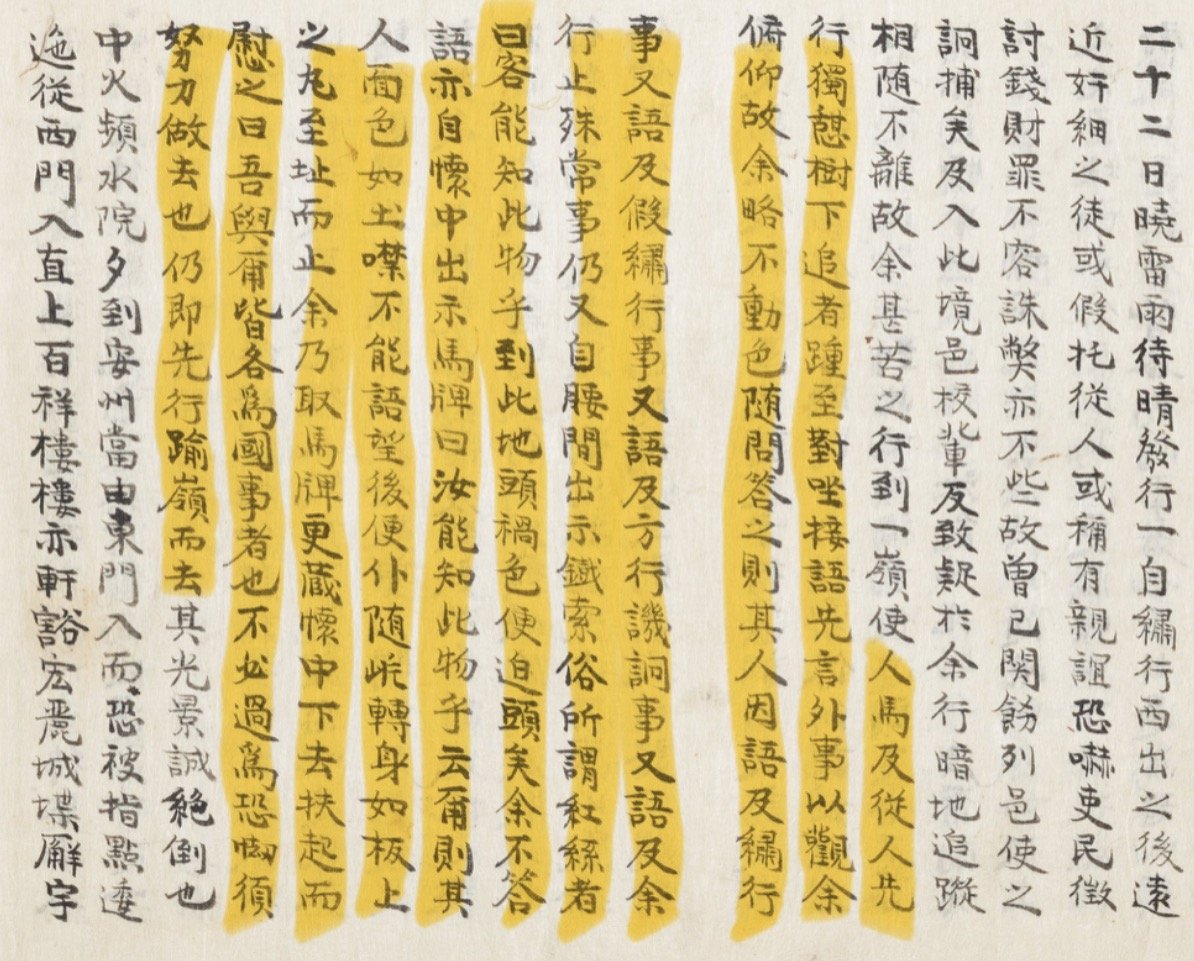 二十二日曉雷雨待晴發行一自繡行西出之後遠
近奸細之徒或假托從人或稱有親誼恐嚇吏民徵
討錢財罪不容誅弊亦不些故曾已関飭列邑使之
詗捕矣及入此境邑校輩反致疑於余行暗地追蹤
相随不離故余甚苦之行到一嶺使人馬及從人先
行獨憇樹下追者踵至對坐接語先言外事以觀余
俯仰故余略不動色随問答之則其人因語及繡行
事又語及假繡行事又語及方行譏詗事又語及余
行止殊常事仍又自腰間出示鐵索俗所謂紅絲者
曰客能知此物乎到此地頭禍色便迫頭矣余不答
語亦自懷中出示馬牌曰汝能知此物乎云爾則其
人面色如土噤不能語望後便仆随崖轉身如板上
之丸至址而止余乃取馬牌更蔵懷中下去扶起而
慰之曰吾與爾皆各爲國事者也不必過爲恐㥘須
努力做去也仍即先行踰嶺而去其光景誠絶倒也
中火頻水院夕到安州當由東門入而恐被指點逶
迤從西門入直上百祥樓樓亦軒豁宏麗城堞廨宇